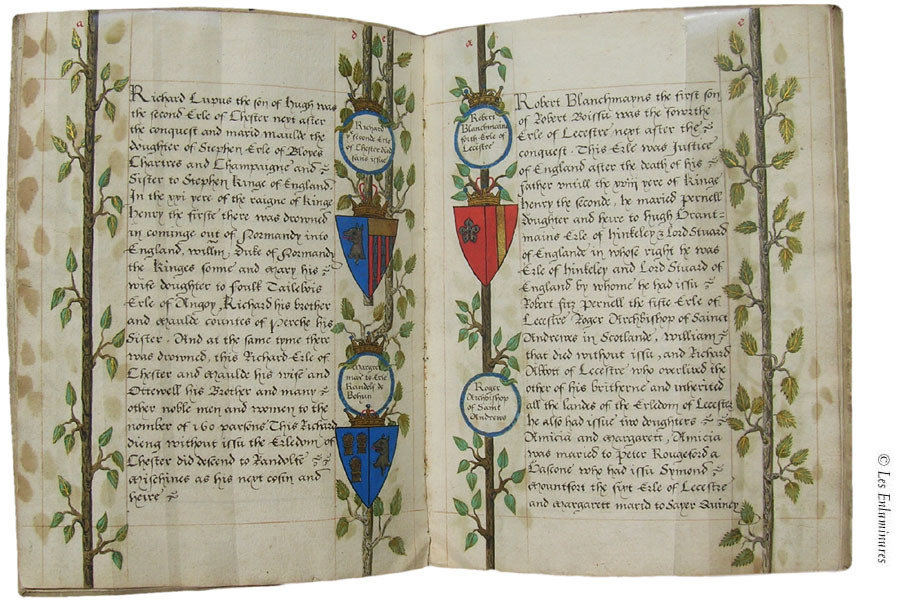 a
Richard Lupus the son of Hugh was
the second Erle of Chester next after
the conquest and marid maulde the
doughter of Stephen Erle of Bloyes
Chartres and Champaigne and
Sister to Stephen Kinge of England
In the xxi yere of the raigne of Kinge
Henry the firste there was drowned
in cominge out of Normandy into
England, willm Duke of Normandy
the Kinges sonne and Mary his
wife doughter to foulk Tailebois
Erle of Angoy, Richard his brother
and Maulde countes of Perche his
Sister. And at the same tyme there
was drowned, this Richard Erle of
Chester and Maulde his wife and
Ottewell his Brother and many
other noble men and women to the
nomber of 160 parsons. This Richard
dieng without issu the Erledom of
Chester did descend to Randolfe
Mischines as his next cosin and
heire
d
Richard
second Erle
of Chester died
sans issue
Margaret
mar. to Erle
Randolf de
Bohun
a
Robert
Blanchmains
forth Erle of
Lecestre
Roger
Archbishop
of Saint
Andrews
e
Robert Blanchmayns the first son
of Robert Boissu was the fowrthe
Erle of Lecestre next after the
conquest. This Erle was Justice
of England after the death of his
father untill the xviij yere of Kinge
Henry the seconde, he maried Pernell
doughter and heire to Hugh Grant-
mains Erle of Hinkeley & Lord Stuard
of Englande in whose right he was
Erle of Hinkeley and Lord Stuard of
England by whome he had issu
Robert fitz Pernell the fifte Erle of
Lecestre Roger Archbishop of Sainct
Andrewes in Scotland, William
that died without issu, and Richard
Abbott of Lecestre who overlived the
other of his bretherne and inherited
all the landes of the Erledom of Lecestre
he also had issue two doughters
Amicia and Margarett, Amicia
was maried to Peter Rougeford a
Gascone who had issu Symond
Mountfort the sixt Erle of Lecestre
and Margarett marid to Sayer Quincy
© Les Enluminures